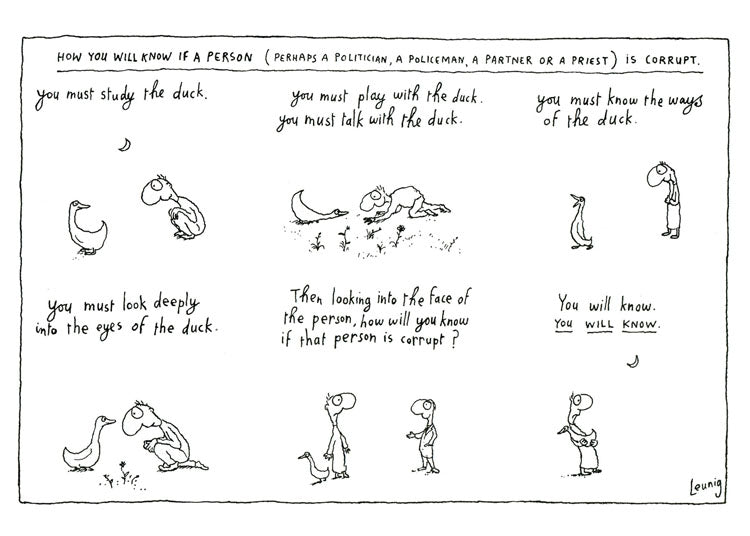 HOW YOU WILL KNOW IF A PERSON (PERHAPS A POLITICIAN, A POLICEMAN, A PARTNER OR A PRIEST) IS CORRUPT.
you must study the duck.
you must play with the duck.
you must talk with the duck.
you must know the ways
of the duck.
you must look deeply
into the eyes of the duck.
Then looking into the face of
the person, how will you know
if that person is corrupt?
You will know.
YOU WILL KNOW.
Leunig